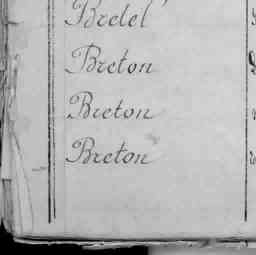 Bretel
Breton
Breton
Breton